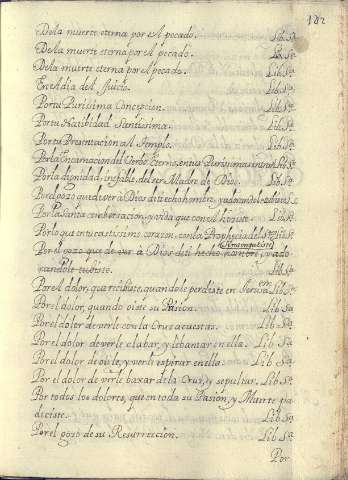 182
De la muerte eterna por el pecado. Lib. Sª.
De la muerte eterna por el pecado. Lib. Sª.
De la muerte eterna por el pecado. Lib. Sª.
En el dia del Juicio. Lib. Sª.
Por tu Purissima Concepcion. Lib. Sª.
Por tu Natibidad Santissima. Lib. Sª.
Por tu Presentacion al Templo. Lib. Sª.
Por la Encarnacion del Verbo Eterno, en tus Purissimas Lib. Sª.
Por la dignidad inefable, del ser Madre de Dios. Lib. Sª.
Por el gozo que de ver à Dios de ti hecho hombre, y
Por la Santa conbersacion, y vida que con el hiziste. Lib. Sª.
Por lo que en tu castissimo corazon, con la Prophecia de Lib. Sª.
Por el gozo que de ver à Dios de ti hecho hombre, y ado
randole tubiste. Lib. Sª.
Por el dolor, que recibiste, quando le perdiste en Lib. Sª.
Por el dolor, quando oiste su Pasion. Lib. Sª.
Por el dolor de verle con la Cruz acuestas. Lib. Sª.
Por el dolor de verle clabar, y lebantar en ella. Lib. Sª.
Por el dolor de oirle, y verle espirar en ella. Lib. Sª.
Por el dolor de verle baxar de la Cruz, y sepultar. Lib. Sª.
Por todos los dolores, que en toda su Pasion, y Muerte pa
deciste. Lib. Sª.
Por el gozo de su Resurreccion. Lib. Sª.
Por